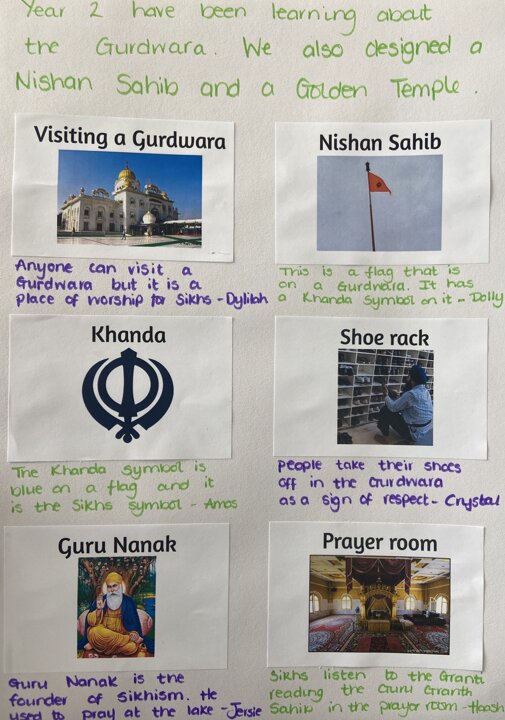 Year 2 have been learning about
the Gurdwara. We also designed a
Nishan Sahib and a Golden Temple.
Visiting a Gurdwara
Anyone can visit a
Gurdwara but it is a
place of worship for Sikhs - Dylilah
Nishan Sahib
This is a flag that is
on a Gurdwara. It has
a Khanda symbol on it - Dolly
Khanda
The Khanda symbol is
blue on a flag and it
is the Sikhs symbol - Amos
Shoe rack
People take their shoes
off in the Gurdwara
as a sign of respect - Crystal
Guru Nanak
Guru Nanak is the
founder of Sikhism. He
used to pray at the lake - Jersie
Prayer room
Sikhs listen to the Granti
reading the Guru Granth
Sahib in the prayer room -